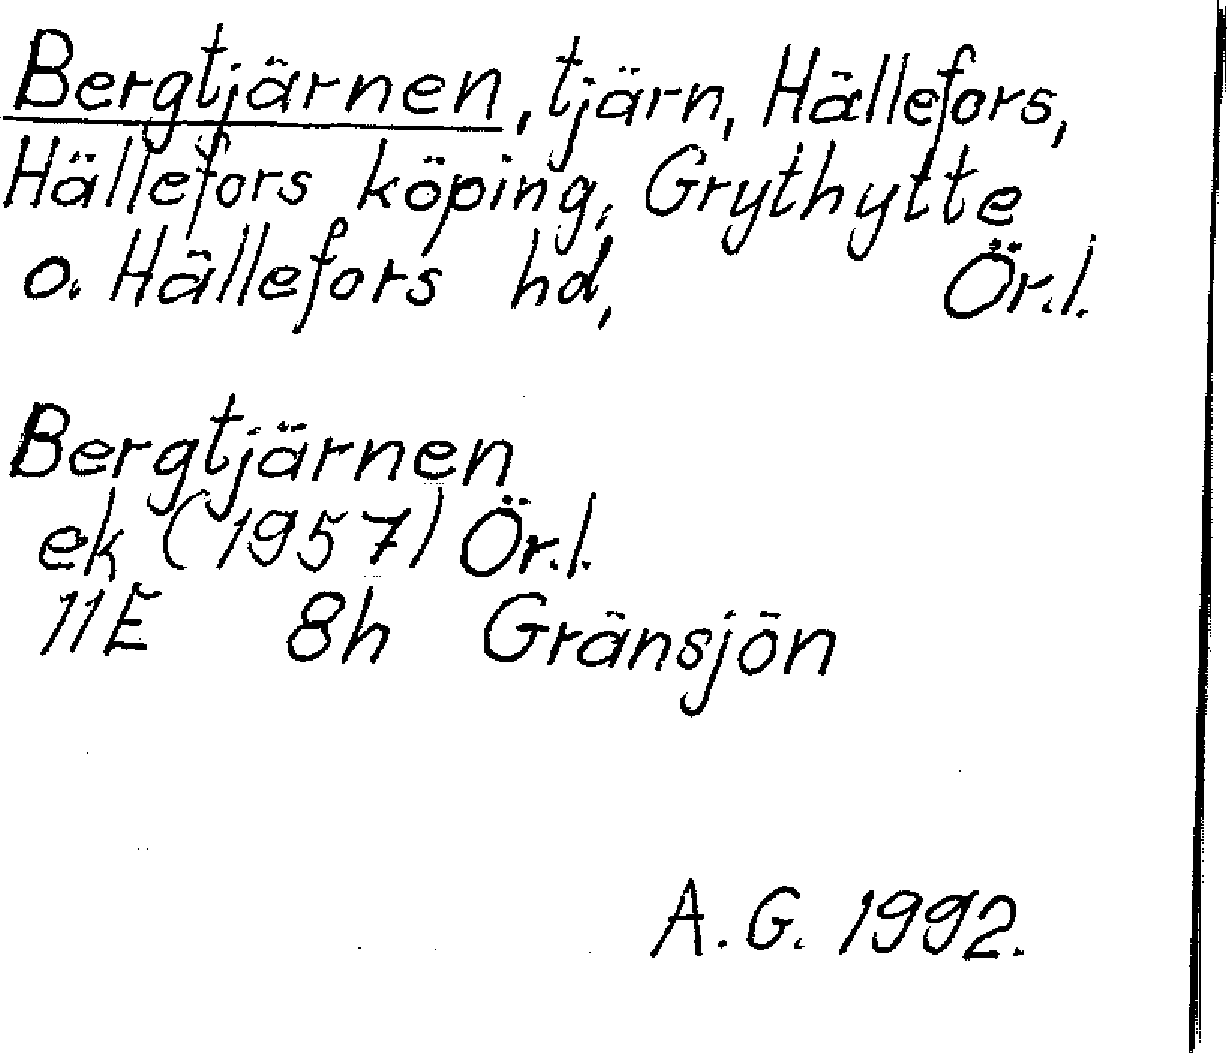 Bergtjärnen, tjärn, Hällefors,
Hällefors köping, Grythytte
o. Hällefors hd, Ör.l.
Bergtjärnen
ek (1957) Ör.l.
11E 8h Gränsjön
A.G. 1992.